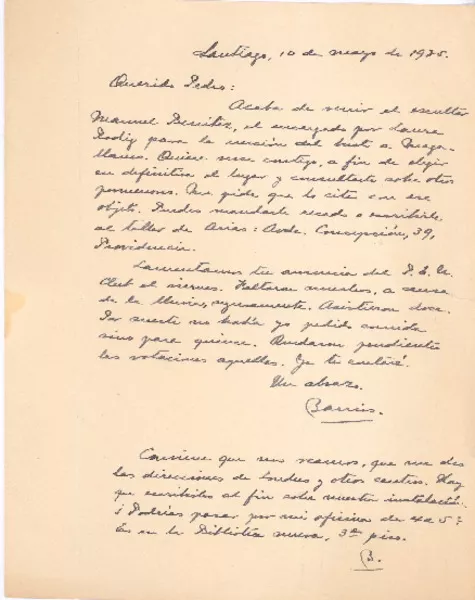 Santiago, 10 de mayo de 1935.
Querido Pedro:
Acaba de venir el escultor
Manuel Benítez, el encargado por Laura
Rodig para la erección del busto a Maga-
llanes. Quiere verse contigo, a fin de elegir
en definitiva el lugar y consultarte sobre otros
pormenores. Me pide que lo cites con ese
objeto. Puedes mandarle recado o escribirle
al taller de Arias: Avda. Concepción, 39,
Providencia.
Lamentamos tu ausencia del P. E. N.
Club el viernes. Faltaron muchos, a causa
de la lluvia, seguramente. Asistieron doce.
Por suerte no había yo pedido comida
sino para quince. Quedaron pendientes
las votaciones aquellas. Ya te contaré.
Un abrazo.
Barrios.
Conviene que nos veamos, que me des
las direcciones de Londres y otros centros. Hay
que escribirles al fin sobre nuestra instalación.
¿Podrías pasar por mi oficina de 4 a 5?
Es en la Biblioteca nueva, 3er piso.
B.